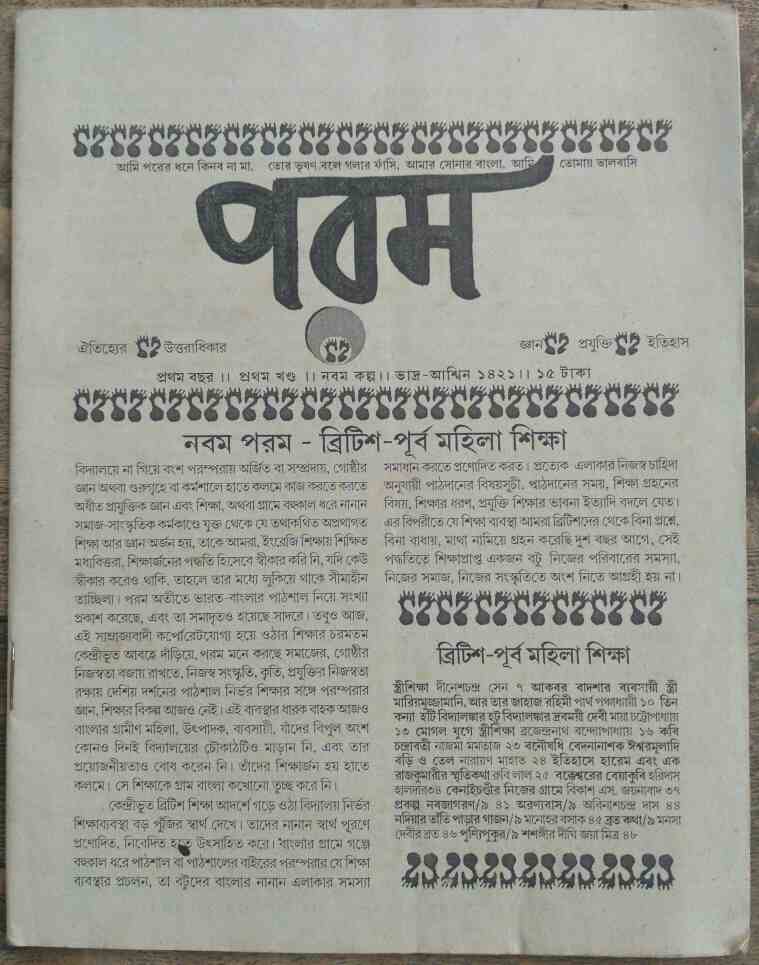 আমি পরের ধনে কিনব না মা, তোর ভূষণ বলে গলার ফাঁসি, আমার সোনার বাংলা, আমি তোমায় ভালবাসি
পরম
ঐতিহ্যের উত্তরাধিকার
জ্ঞান প্রযুক্তি ইতিহাস
প্রথম বছর ।। প্রথম খণ্ড ।। নবম কল্প।। ভাদ্র-আশ্বিন ১৪২১।। ১৫ টাকা
নবম পরম - ব্রিটিশ-পূর্ব মহিলা শিক্ষা
বিদ্যালয়ে না গিয়ে বংশ পরম্পরায় অর্জিত বা সম্প্রদায়, গোষ্ঠীর
জ্ঞান অথবা গুরুগৃহে বা কর্মশালে হাতে কলমে কাজ করতে করতে
অধীত প্রাযুক্তিক জ্ঞান এবং শিক্ষা, অথবা গ্রামে বহুকাল ধরে নানান
সমাজ-সাংস্কৃতিক কর্মকাণ্ডে যুক্ত থেকে যে তথাকথিত অপ্রথাগত
শিক্ষা আর জ্ঞান অর্জন হয়, তাকে আমরা, ইংরেজি শিক্ষায় শিক্ষিত
মধ্যবিত্তরা, শিক্ষার্জনের পদ্ধতি হিসেবে স্বীকার করি নি, যদি কেউ
স্বীকার করেও থাকি, তাহলে তার মধ্যে লুকিয়ে থাকে সীমাহীন
তাচ্ছিল্য। পরম অতীতে ভারত-বাংলার পাঠশাল নিয়ে সংখ্যা
প্রকাশ করেছে, এবং তা সমাদৃতও হয়েছে সাদরে। তবুও আজ,
এই সাম্রাজ্যবাদী কর্পোরেটযোগ্য হয়ে ওঠার শিক্ষার চরমতম
কেন্দ্রীভূত আবহে দাঁড়িয়ে, পরম মনে করছে সমাজের, গোষ্ঠীর
নিজস্বতা বজায় রাখতে, নিজস্ব সংস্কৃতি, কৃতি, প্রযুক্তির নিজস্বতা
রক্ষায় দেশিয় দর্শনের পাঠশাল নির্ভর শিক্ষার সঙ্গে পরম্পরার
জ্ঞান, শিক্ষার বিকল্প আজও নেই। এই ব্যবস্থার ধারক বাহক আজও
বাংলার গ্রামীণ মহিলা, উৎপাদক, ব্যবসায়ী, যাঁদের বিপুল অংশ
কোনও দিনই বিদ্যালয়ের চৌকাঠটিও মাড়ান নি, এবং তার
প্রয়োজনীয়তাও বোধ করেন নি। তাঁদের শিক্ষার্জন হয় হাতে
কলমে। সে শিক্ষাকে গ্রাম বাংলা কখোনো তুচ্ছ করে নি।
কেন্দ্রীভূত ব্রিটিশ শিক্ষা আদর্শে গড়ে ওঠা বিদ্যালয় নির্ভর
শিক্ষাব্যবস্থা বড় পুঁজির স্বার্থ দেখে। তাদের নানান স্বার্থ পূরণে
প্রণোদিত, নিবেদিত হতে উৎসাহিত করে। বাংলার গ্রামে গঞ্জে
বহুকাল ধরে পাঠশাল বা পাঠশালের বাইরের পরম্পরার যে শিক্ষা
ব্যবস্থার প্রচলন, তা বটুদের বাংলার নানান এলাকার সমস্যা
সমাধান করতে প্রণোদিত করত। প্রত্যেক এলাকার নিজস্ব চাহিদা
অনুযায়ী পাঠদানের বিষয়সূচী, পাঠদানের সময়, শিক্ষা গ্রহনের
বিষয়, শিক্ষার ধরণ, প্রযুক্তি শিক্ষার ভাবনা ইত্যাদি বদলে যেত।
এর বিপরীতে যে শিক্ষা ব্যবস্থা আমরা ব্রিটিশদের থেকে বিনা প্রশ্নে,
বিনা বাধায়, মাথা নামিয়ে গ্রহন করেছি দুশ বছর আগে, সেই
পদ্ধতিতে শিক্ষাপ্রাপ্ত একজন বটু নিজের পরিবারের সমস্যা,
নিজের সমাজ, নিজের সংস্কৃতিতে অংশ নিতে আগ্রহী হয় না।
ব্রিটিশ-পূর্ব মহিলা শিক্ষা
স্ত্রীশিক্ষা দীনেশচন্দ্র সেন ৭ আকবর বাদশার ব্যবসায়ী স্ত্রী
মারিয়মুজ্জামানি, আর তার জাহাজ রহিমী পার্থ পঞ্চাধ্যায়ী ১০ তিন
কন্যা হটি বিদ্যালঙ্কার হটু বিদ্যালঙ্কার দ্রবময়ী দেবী মায়া চট্টোপাধ্যায়
১৩ মোগল যুগে স্ত্রীশিক্ষা ব্রজেন্দ্রনাথ বন্দোপাধ্যায় ১৬ কবি
চন্দ্রাবতী নাজমা মমতাজ ২৩ বনৌষধি বেদনানাশক ঈশ্বরমূলাদি
বড়ি ও তেল নারায়ণ মাহাত ২৪ ইতিহাসে হারেম এবং এক
রাজকুমারীর স্মৃতিকথা রুবি লাল ২৫ বক্কেশ্বরের বেয়াকুবি হরিদাস
হালদার৩৪ কেনাইচণ্ডীর নিজের গ্রামে বিকাশ এস. জয়নাবাদ ৩৭
প্রকল্প নবজাগরণ/৯ ৪১ অরণ্যবাস/৯ অবিনাশচন্দ্র দাস ৪৪
নদিয়ার তাঁতি পাড়ার গাজন/৯ মনোহর বসাক ৪৫ ব্রত কথা/৯ মনসা
দেবীর ব্রত ৪৬ পুণ্যিপুকুর/৯ শশঙ্গীর দীঘি জয়া মিত্র ৪৮